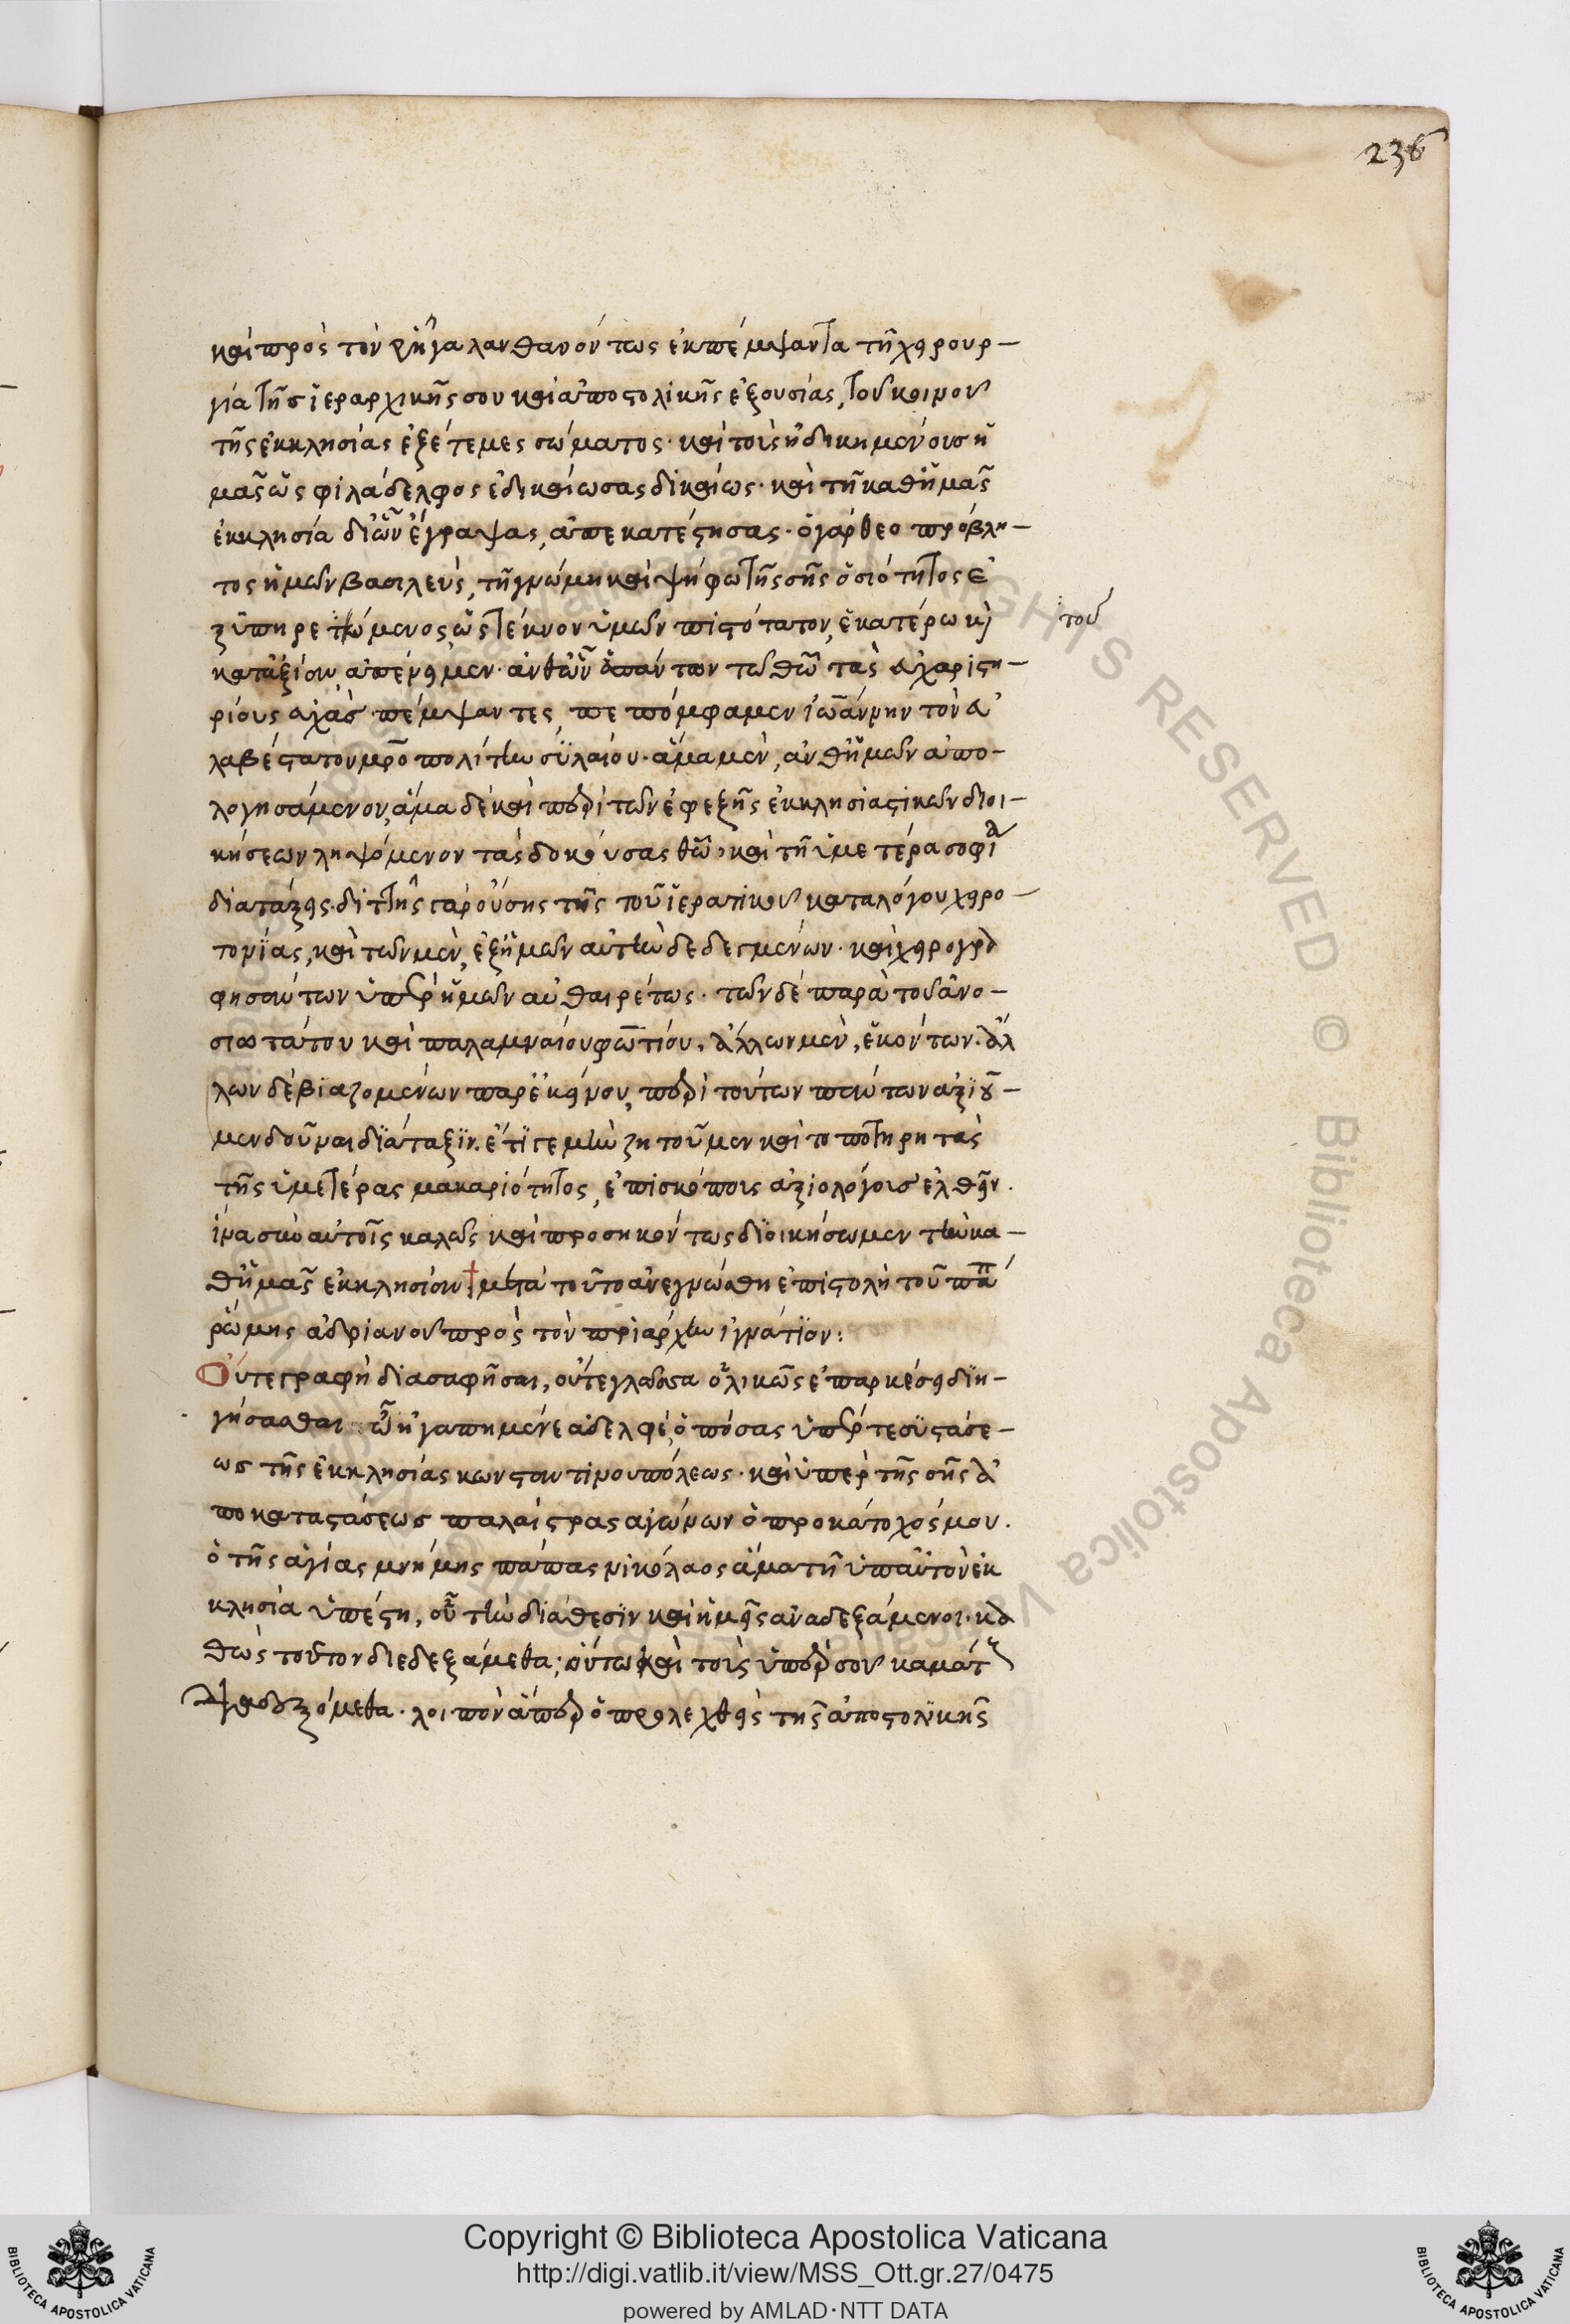 236
καὶ πρὸς τὸν ῥῆγα λανθανόντως ἐκπέμψαντα τῆ χειρουρ-
γία τῆς ἱεραρχικῆς σου καὶ ἀποστολικῆς ἐξουσίας, τοῦ κοινοῦ
τῆς ἐκκλησίας ἐξέτεμες σώματος· καὶ τοῖς ἠδικημένοις ἡ
μᾶς ὡς φιλάδελφος ἐδικαίωσας δικαίως· καὶ τῆ καθ' ἡμᾶς
ἐκκλησία δι' ὧν ἔγραψας, ἀπεκατέστησας· ὁ γὰρ θεο πρόβλη-
τος ἡμῶν βασιλεὺς, τῆ γνώμη καὶ ψήφω τῆς σῆς ὁσιότητος ἐ
ξυπηρετώμενος, ὡς τέκνον ὑμῶν πιστότατον, ἑκατέρω καὶ
τοῦ
κατ' ἀξίαν ἀπένειμεν· ἀνθ' ὧν ἁπάντων τῶ θῶ τὰς εὐχαριστη-
ρίους εὐχὰς πέμψαντες, πεπόμφαμεν ἰωάννην τὸν εὐ
λαβέστατον μρο πολίτην συλαίου· ἅμα μὲν, ἀνθ' ἡμῶν ἀπο-
λογησάμενον, ἅμα δὲ καὶ περὶ τῶν ἐφεξῆς ἐκκλησιαστικῶν διοι-
κήσεων ληψόμενον τὰς δοκούσας θῶ, καὶ τῆ ὑμετέρα σοφία
διατάξεις· διττῆς γὰρ οὔσης τῆς τοῦ ἱερατικοῦ καταλόγου χειρο-
τονίας, καὶ τῶν μὲν, ἐξ ἡμῶν αὐτὴν δεδεγμένων· καὶ χειρογρα
φησάντων ὑπὲρ ἡμῶν αὐθαιρέτως· τῶν δὲ παρὰ τοῦ ἀνο-
σιωτάτου καὶ παλαμναίου φωτίου, ἄλλων μὲν, ἑκόντων· ἄλ
λων δὲ βιαζομένων παρ' ἐκείνου, περὶ τούτων πάντων ἀξιοῦ-
μεν δοῦναι διάταξιν. ἔτι γε μὴν ζητοῦμεν καὶ τοποτηρητὰς
τῆς ὑμετέρας μακαριότητος, ἐπισκόποις ἀξιολόγοις ἐλθεῖν.
ἵνα σὺν αὐτοῖς καλῶς καὶ προσηκόντως διοικήσωμεν τὴν κα-
θ' ἡμᾶς ἐκκλησίαν: † μετὰ τοῦτο ἀνεγνώσθη ἐπιστολὴ τοῦ παπ
ῥώμης ἀδριανοῦ πρὸς τὸν πριάρχην ἰγνάτιον:
Οὔτε γραφὴ διασαφῆσαι, οὔτε γλῶσσα ὁλικῶς ἐπαρκέσει διη-
γήσασθαι· ὦ ἠγαπημένε ἀδελφέ, ὁπόσας ὑπέρ τε συστάσε-
ως τῆς ἐκκλησίας κωνσταντινουπόλεως· καὶ ὑπὲρ τῆς σῆς ἀ
ποκαταστάσεως παλαίστρας ἀγώνων ὁ προκάτοχός μου.
ὁ τῆς ἁγίας μνήμης πάπας νικόλαος ἅμα τῆ ὑπ' αὐτὸν ἐκ
κλησία ὑπέστη, οὗ τὴν διάθεσιν καὶ ἡμεῖς ἀναδεξάμενοι· κα
θὼς τοῦτον διεδεξάμεθα; οὕτω καὶ τοὺς ὑπὲρ σοῦ καμάτ
όμεθα· λοιπὸν ἅπερ ὁ προλεχθεὶς τῆς ἀποστολικῆς
Copyright © Biblioteca Apostolica Vaticana
http://digi.vatlib.it/view/MSS_Ott.gr.27/0475
powered by AMLAD·NTT DATA
BIBLIOTECA APOSTOLICA VATICANA
BIBLIOTECA APOSTOLICA VATICANA
RIGHTS RESERVED © Biblioteca Apostolica Vaticana